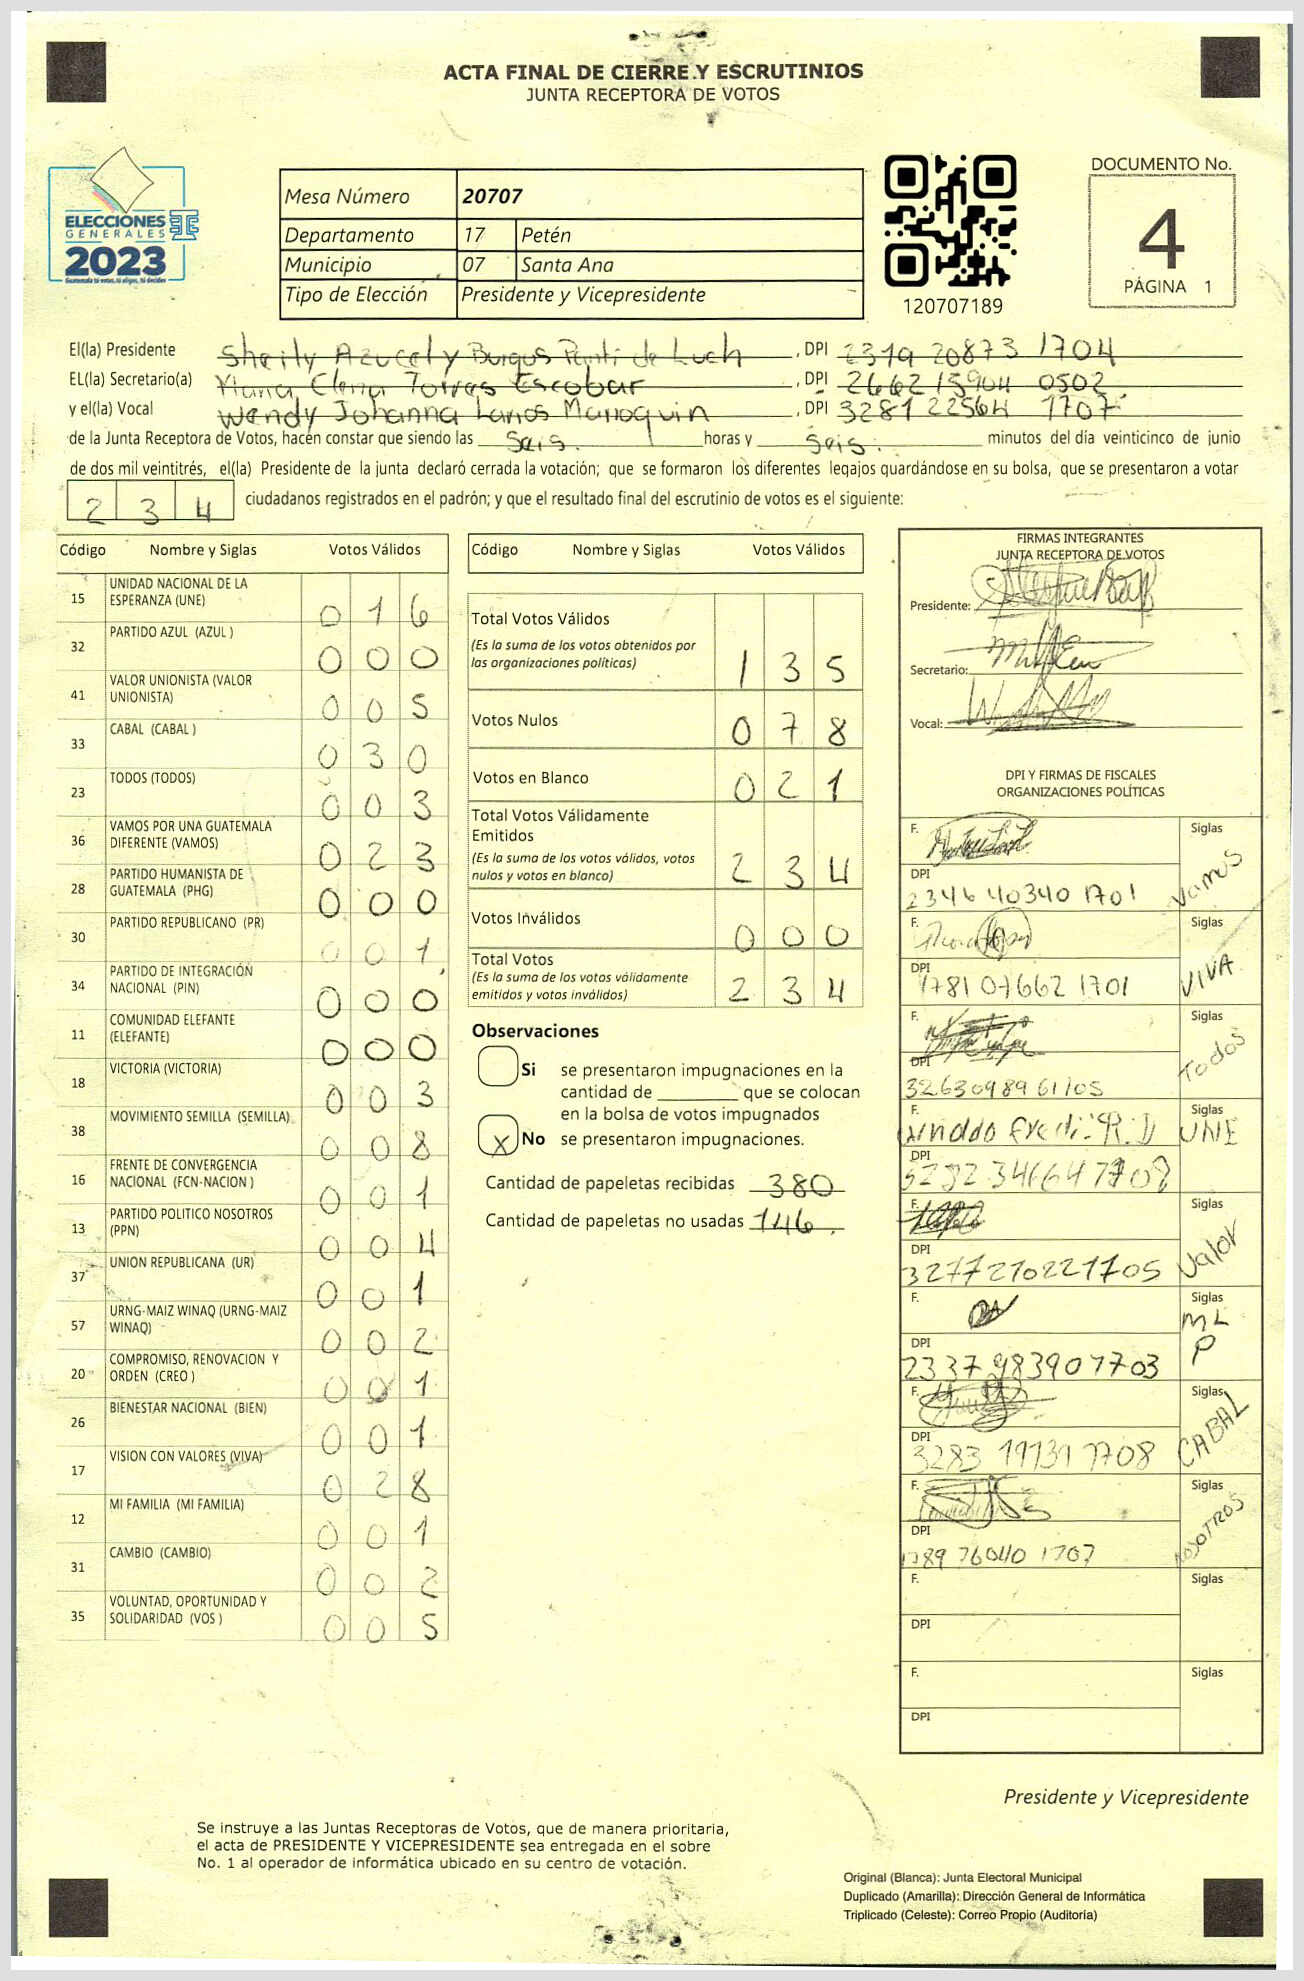 ACTA FINAL DE CIERRE Y ESCRUTINIOS
JUNTA RECEPTORA DE VOTOS
ELECCIONES
GENERALES
2023
Guatemala tú votas, tú eliges, tú decides
Mesa Número 20707
Departamento 17 Petén
Municipio 07 Santa Ana
Tipo de Elección Presidente y Vicepresidente
120707189
DOCUMENTO No.
4
PÁGINA 1
El(la) Presidente Sheily Azucely Burgos Panti de Luch, DPI 2319 20873 1704
EL(la) Secretario(a) Maria Elena Torres Escobar, DPI 2662 15904 0502
y el(la) Vocal Wendy Johanna Lanos Manoquin, DPI 3281 22564 1707
de la Junta Receptora de Votos, hacen constar que siendo las Seis. horas y Seis. minutos del día veinticinco de junio
de dos mil veintitrés, el(la) Presidente de la junta declaró cerrada la votación; que se formaron los diferentes legajos guardándose en su bolsa, que se presentaron a votar
2 3 4 ciudadanos registrados en el padrón; y que el resultado final del escrutinio de votos es el siguiente:
Código Nombre y Siglas Votos Válidos
15 UNIDAD NACIONAL DE LA ESPERANZA (UNE) 0 1 6
32 PARTIDO AZUL (AZUL ) 0 0 0
41 VALOR UNIONISTA (VALOR UNIONISTA) 0 0 5
33 CABAL (CABAL ) 0 3 0
23 TODOS (TODOS) 0 0 3
36 VAMOS POR UNA GUATEMALA DIFERENTE (VAMOS) 0 2 3
28 PARTIDO HUMANISTA DE GUATEMALA (PHG) 0 0 0
30 PARTIDO REPUBLICANO (PR) 0 0 1
34 PARTIDO DE INTEGRACIÓN NACIONAL (PIN) 0 0 0
11 COMUNIDAD ELEFANTE (ELEFANTE) 0 0 0
18 VICTORIA (VICTORIA) 0 0 3
38 MOVIMIENTO SEMILLA (SEMILLA) 0 0 8
16 FRENTE DE CONVERGENCIA NACIONAL (FCN-NACION ) 0 0 1
13 PARTIDO POLITICO NOSOTROS (PPN) 0 0 4
37 UNION REPUBLICANA (UR) 0 0 1
57 URNG-MAIZ WINAQ (URNG-MAIZ WINAQ) 0 0 2
20 COMPROMISO, RENOVACION Y ORDEN (CREO ) 0 0 1
26 BIENESTAR NACIONAL (BIEN) 0 0 1
17 VISION CON VALORES (VIVA) 0 2 8
12 MI FAMILIA (MI FAMILIA) 0 0 1
31 CAMBIO (CAMBIO) 0 0 2
35 VOLUNTAD, OPORTUNIDAD Y SOLIDARIDAD (VOS ) 0 0 5
Código Nombre y Siglas Votos Válidos
Total Votos Válidos
(Es la suma de los votos obtenidos por
las organizaciones políticas) 1 3 5
Votos Nulos 0 7 8
Votos en Blanco 0 2 1
Total Votos Válidamente
Emitidos
(Es la suma de los votos válidos, votos
nulos y votos en blanco) 2 3 4
Votos Inválidos 0 0 0
Total Votos
(Es la suma de los votos válidamente
emitidos y votos inválidos) 2 3 4
Observaciones
Si se presentaron impugnaciones en la
cantidad de ________ que se colocan
en la bolsa de votos impugnados
X No se presentaron impugnaciones.
Cantidad de papeletas recibidas 380
Cantidad de papeletas no usadas 146.
FIRMAS INTEGRANTES
JUNTA RECEPTORA DE VOTOS
Presidente:
Secretario:
Vocal:
DPI Y FIRMAS DE FISCALES
ORGANIZACIONES POLÍTICAS
F. Siglas Vamos
DPI 2346 40340 1701
F. Siglas VIVA
DPI 1781 07662 1701
F. Siglas Todos
DPI 3263098961705
F. Siglas UNE
DPI
F. Siglas Valor
DPI 3277270221705
F. Siglas MLP
DPI 2337983901703
F. Siglas CABAL
DPI 3283 19739 1708
F. Siglas NOSOTROS
DPI 1789 76040 1707
F. Siglas
DPI
F. Siglas
DPI
Presidente y Vicepresidente
Se instruye a las Juntas Receptoras de Votos, que de manera prioritaria,
el acta de PRESIDENTE Y VICEPRESIDENTE sea entregada en el sobre
No. 1 al operador de informática ubicado en su centro de votación.
Original (Blanca): Junta Electoral Municipal
Duplicado (Amarilla): Dirección General de Informática
Triplicado (Celeste): Correo Propio (Auditoría)